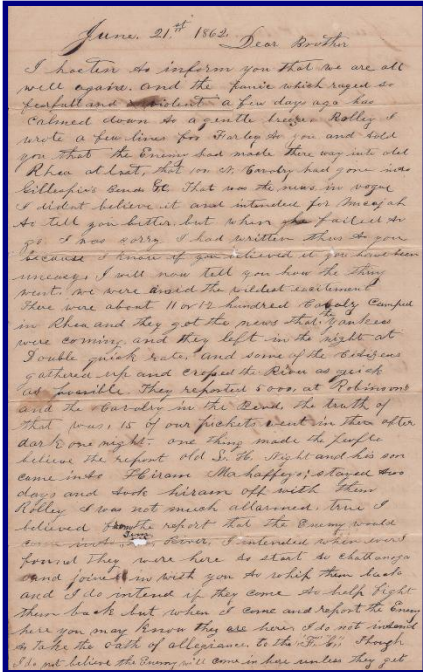 June. 21.st 1862.
Dear Brother
I hasten to inform you that we are all
well again. and the panic which raged so
fearfull and violent a few days ago has
calmed down to a gentle breeze Rolley I
wrote a few lines for Farley to you and told
you that the Enemy had made there way into old
Rhea & that, 100 N. Cavalry had gone into
Gillespie's Bend &t. That was the news in vogue
I didnt believe it and intended for Micajah
to tell you better. but when he failed to
go I was sorry I had written thus to you
because I know if you believed it you have been
uneasy. I will now tell you how the thing
went. we were amid the wildest excitement
There were about 11 or 12 hundred Cavalry Camped
in Rhea and they got the news that the Yankees
were coming and they left in the night at
Double quick rate, and some of the Citizens
gathered up and crossed the River as quick
as possible. They reported 5000. at Robinsons
and the Cavalry in the Bend. the truth of
that was, 15 of our pickets went in there after
dark one night. one thing made the people
believe the report old Night and his son
came into Hiram Mahaffeys; stayed two
days and took hiram off with them
Rolley I was not much allarmed. true I
believed the report that the Enemy would
come into River, I intended when ever I
found they were here to start to Chattanooga
and joine in with you to whip them back
and I do intend if they come to help fight
them back but when I come and report the Enemy
here you may know they are here. I do not intend
to take the oath of allegiance to the Though
I do not believe the Enemy will come in here unless they get